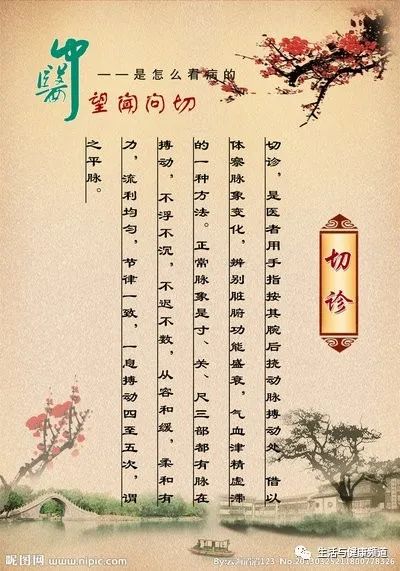 中醫
——是怎么看病的
望闻问切
切诊
切诊，是医者用手指按其腕后挠动脉搏动处，借以
体察脉象变化，辨别脏腑功能盛衰，气血津精虚滞
的一种方法。正常脉象是寸、关、尺三部都有脉在
搏动，不浮不沉，不迟不数，从容和缓，柔和有
力，流利均匀，节律一致，一息搏动四至五次，谓
之平脉。
生活与健康频道
昵图网 www.nipic.com